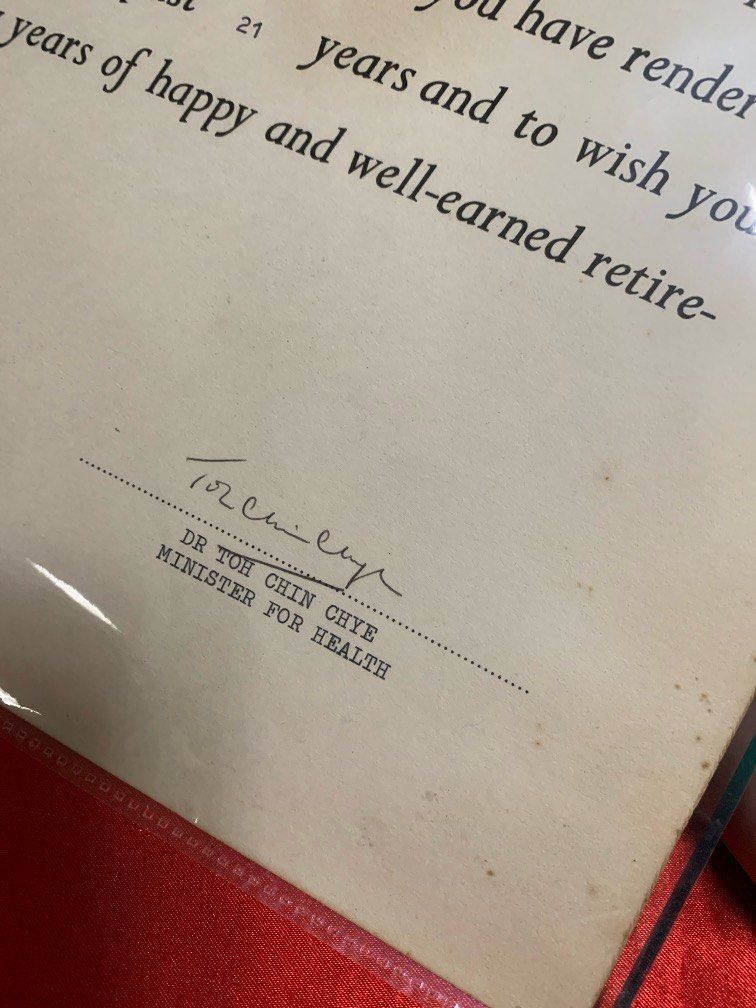 you have render
21 years and to wish you
years of happy and well-earned retire-
Toh Chin Chye
DR TOH CHIN CHYE
MINISTER FOR HEALTH